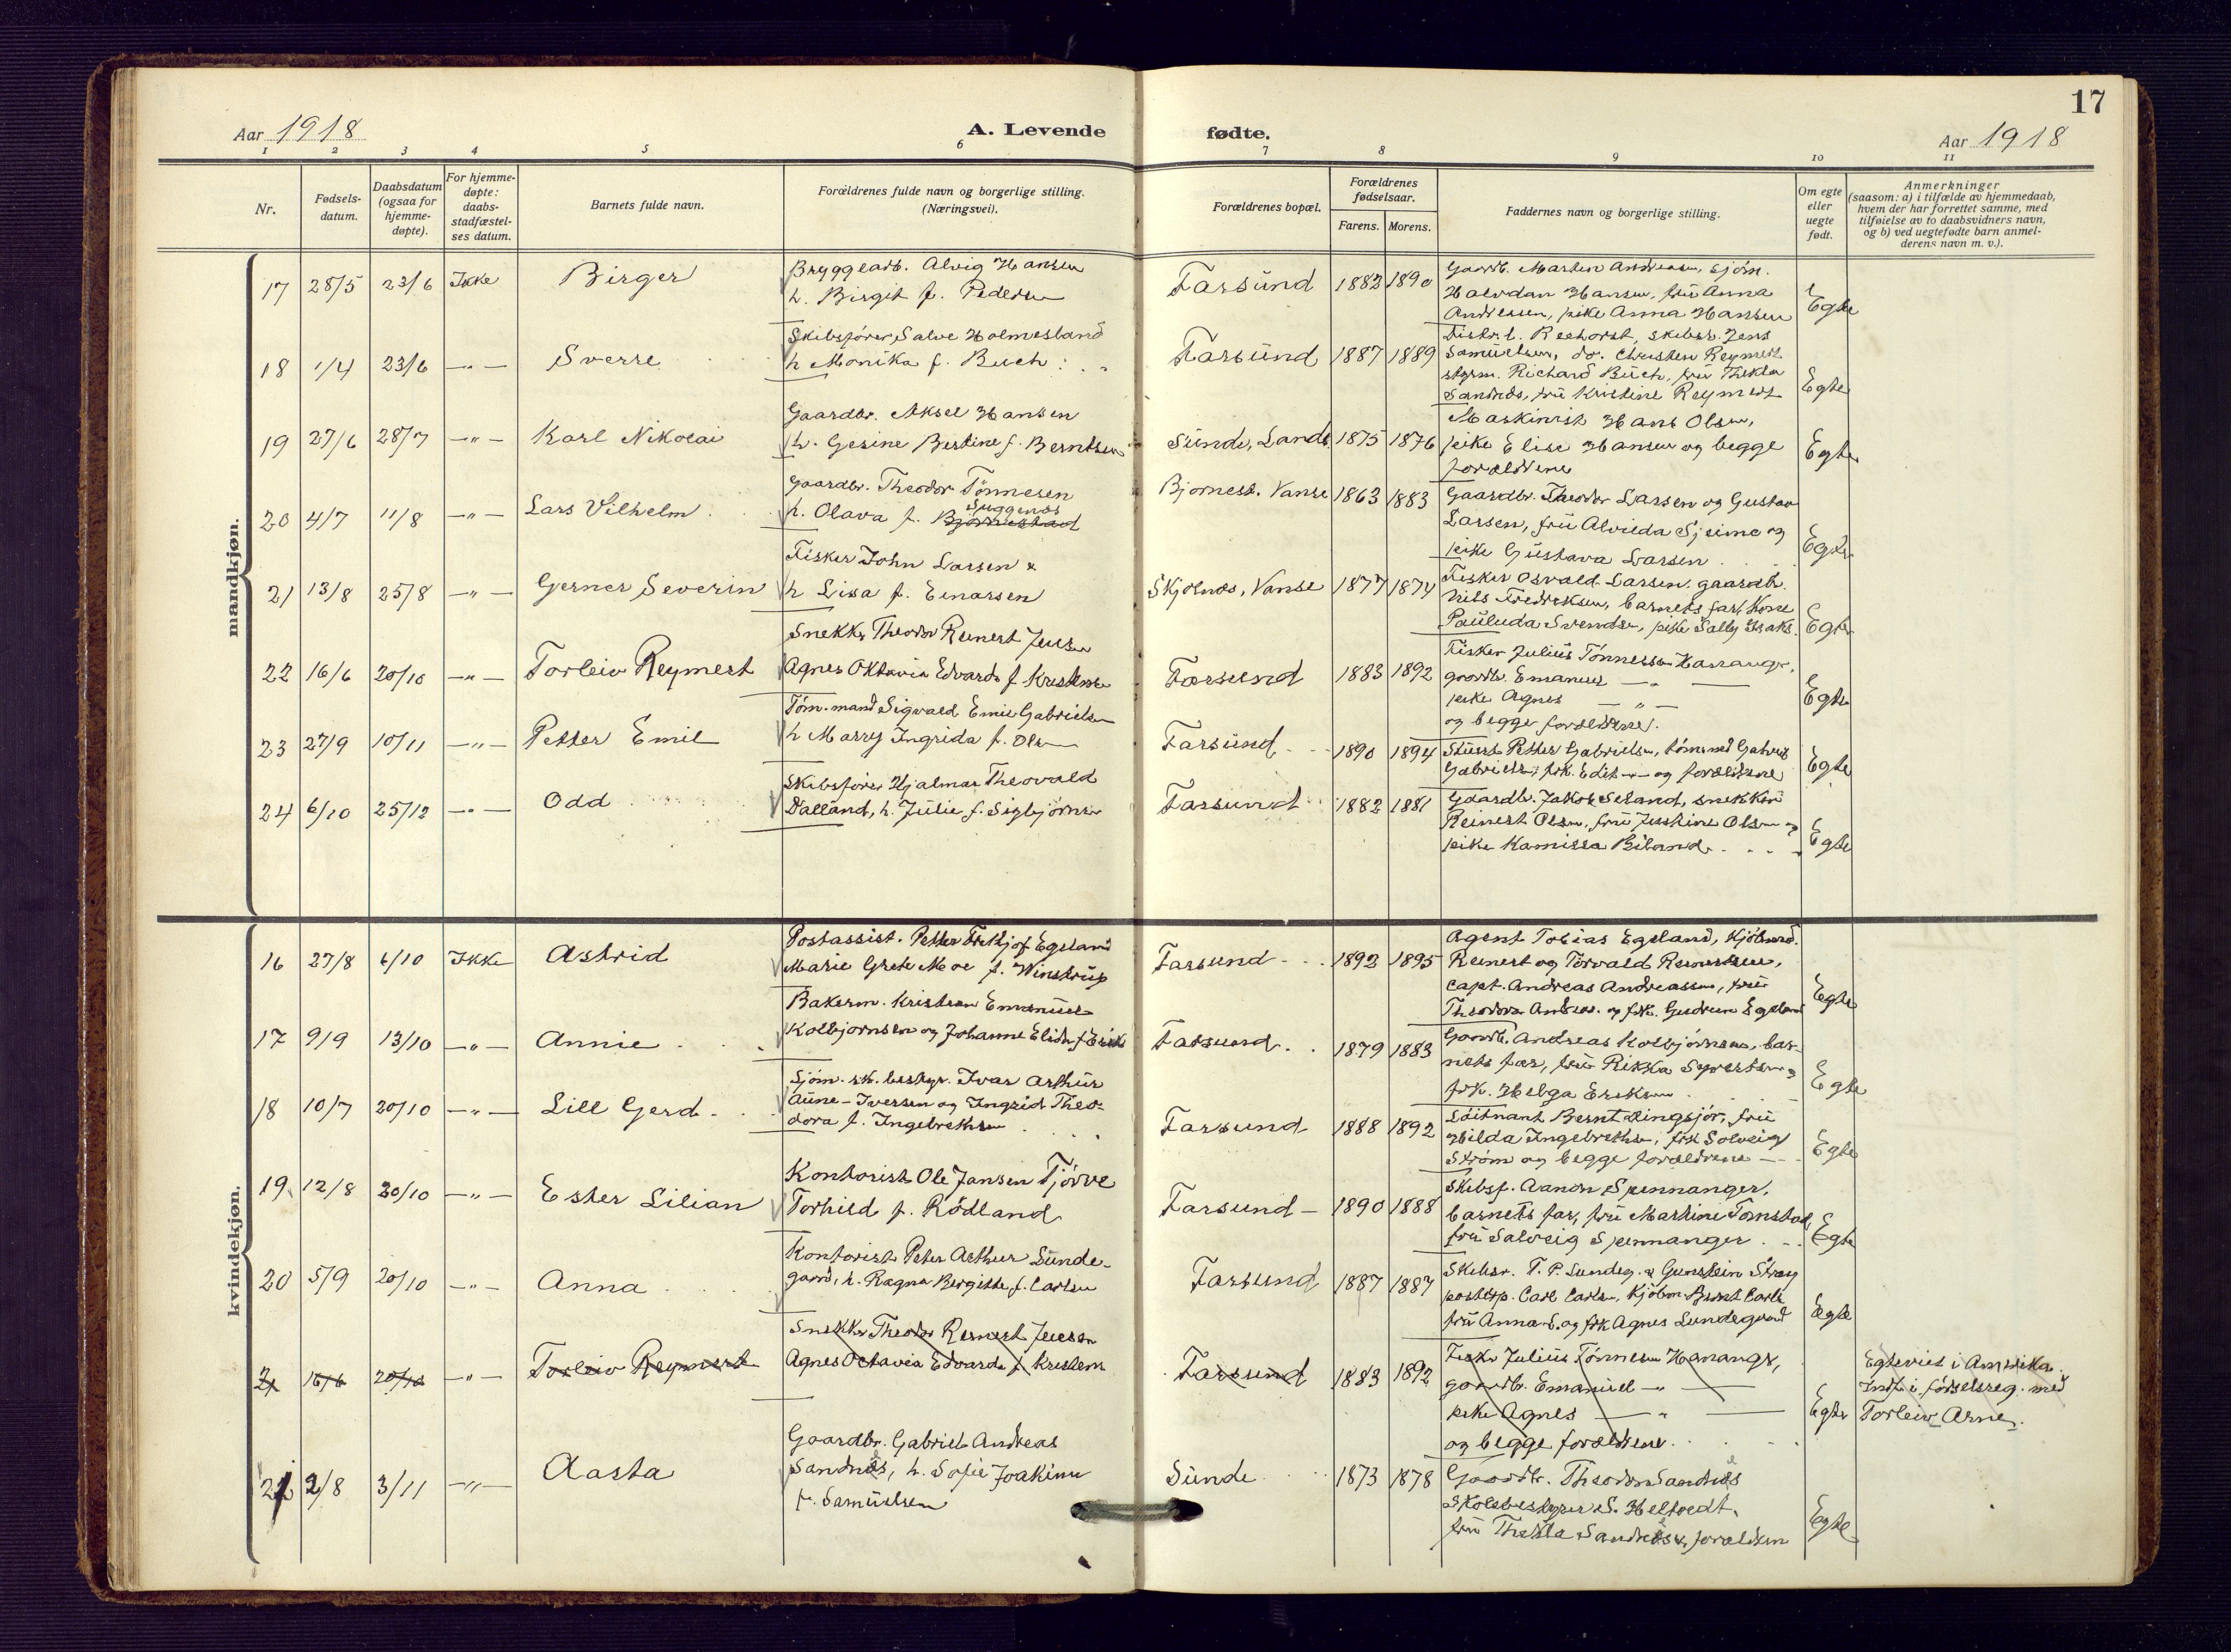 17
Aar 1918
A. Levende
fødte.
Aar 1918
1 2 3 4 5 6 7 8 9 10 11
Nr.
Fødsels-
datum.
Daabsdatum
(ogsaa for
hjemme-
døpte).
For hjemme-
døpte:
daabs-
stadfæstel-
ses datum.
Barnets fulde navn.
Forældrenes fulde navn og borgerlige stilling.
(Næringsvei).
Forældrenes bopæl.
Forældrenes
fødselsaar.
Farens. Morens.
Faddernes navn og borgerlige stilling.
Om egte
eller
uegte
født.
Anmerkninger
(saasom: a) i tilfælde av hjemmedaab,
hvem der har forrettet samme, med
tilføielse av to daabsvidners navn,
og b) ved uegtefødte barn anmel-
derens navn m. v.).
mandkjøn.
17 28/5 23/6 Ikke Birger
Bryggearb. Alvig Hansen
h. Birgit f. Pedersen
Farsund 1882 1890
Gaardb. Marten Andreasen, sjøm.
Halvdan Hansen, frü Anna
Andressen, pike Anna Hansen
Egte
18 1/4 23/6 -"- Sverre
Skibsfører Salve Holmesland
h Monika f. Buch
Farsund 1887 1889
L. Reehorst, skibsr. Jens
Samuelsen, do. Christen Reymert
styrm. Richard Büch, frü Thekla
Sandnes, frü Kristine Reymert
Egte
19 27/6 28/7 -"- Karl Nikolai
Gaardbr. Aksel Hansen
h. Gesine Bertine f. Berntsen
Sunde, Lande 1875 1876
Maskinist Hans Olsen,
pike Elise Hansen og begge
forældrene
Egte
20 4/7 11/8 -"- Lars Vilhelm
Gaardbr. Theodor Tønnesen
h. Olava f. Bjørnestad
Bjørnest. Vanse 1863 1883
Gaardbr. Theodor Larsen og Gustav
Larsen, frü Alvilda og
pike Güstava Larsen
Egte
21 13/8 25/8 -"- Gerner Severin
Fisker John Larsen &
h Lisa f. Einarsen
Skjolnes, Vanse 1877 1874
Fisker Osvald Larsen, gaardb.
Nils Fredriksen, barnets far, Kone
Pauluda Svends., pike Sally Isaks.
Egte
22 16/6 20/10 -"- Torleiv Reymert
Snekker Theodor Reinert Jensen
Agnes Oktavia Edvarda f Kristense
Farsund 1883 1892
Fisker Julius Tønnessen Hanangr,
gaardb. Emanuel -"-
pike Agnes -"-
og begge forældrene.
Egte
23 27/9 10/11 -"- Petter Emil
Tøm.mand Sigvald Emil Gabrielsen
h Marry Ingrida f. Olsen
Farsund 1890 1894
Stuert Petter Gabrielsen, tømmed Gabriel
Gabrielsen, frk. Edit -"- og forældrene
Egte
24 6/10 25/12 -"- Odd
Skibsfører Hjalmar Theovald
Dalland, h. Julie f. Sigbjørnsen
Farsund 1882 1881
Gaardb. Jakob Seland, snekker
Reinert Olsen, frü Justine Olsen og
pike Kamilla Biland
Egte
kvindekjøn.
16 27/8 6/10 Ikke Astrid
Postassist. Petter Fritjof Egeland
Marie Grete Moe f. Winstrup
Farsund 1892 1895
Agent Tobias Egeland, Kjøbmd.
Reinert og Torvald Reinertsen,
capt. Andreas Andreassen, frü
Theodora Andreas. og frk. Gudrun Egeland
Egte
17 9/9 13/10 -"- Annie
Bakerm. Kristian Emanuel
Kolbjørnsen og Johanne Elida f Eriks
Farsund 1879 1883
Gaardb. Andreas Kolbjørnsen, bar-
nets far, frü Rikka Syvertsen og
frk. Helga Eriksen
Egte
18 10/7 20/10 -"- Lill Gerd
Sjøm. sk. bestyr. Ivar Arthur
Aune-Iversen og Ingrid Theo-
dora f. Ingebretsen
Farsund 1888 1892
Løitnant Bernt Lingsjør, frü
Hilda Ingebretsen, frk Solveig
Strøm og begge forældrene
Egte
19 12/8 20/10 -"- Ester Lilian
Kontorist Ole Jansen Tjørve
Torhild f. Rødland
Farsund 1890 1888
Skibsf. Aanon Spennanger,
barnets far, frü Martine Tomstad
frü Salveig Spennanger
Egte
20 5/9 20/10 -"- Anna
Kontorist Peter Arthur Sunde-
gaard, h. Ragna Bergitte f. Carlsen
Farsund 1887 1887
Skibsr. T. P. Sundeg. & Gunstein Stray
postexp. Carl Carlsen, Kjøbm Bernt Carls.
frü Anna S. og frk Agnes Sundegaard
Egte
21 16/6 20/10 -"- Torleiv Reymert
Snekker Theodor Reinert Jensen
Agnes Octavia Edvarda f Kristens
Farsund 1883 1892
Fisker Julius Tønnesen Hanangr,
gaardb. Emanuel -"-
pike Agnes -"-
og begge forældrene.
Egte
Egteviet i Amerika.
Indf. i fødselsreg. med
Torleiv Arne.
21 2/8 3/11 -"- Aasta
Gaardbr. Gabriel Andreas
Sandnes, h. Sofie Joakime
f. Samuelsen
Sunde 1873 1878
Gaardbr. Theodor Sandnes
Skolebestyrer S. Heltvedt,
frü Thekla Sandnes & forældren
Egte